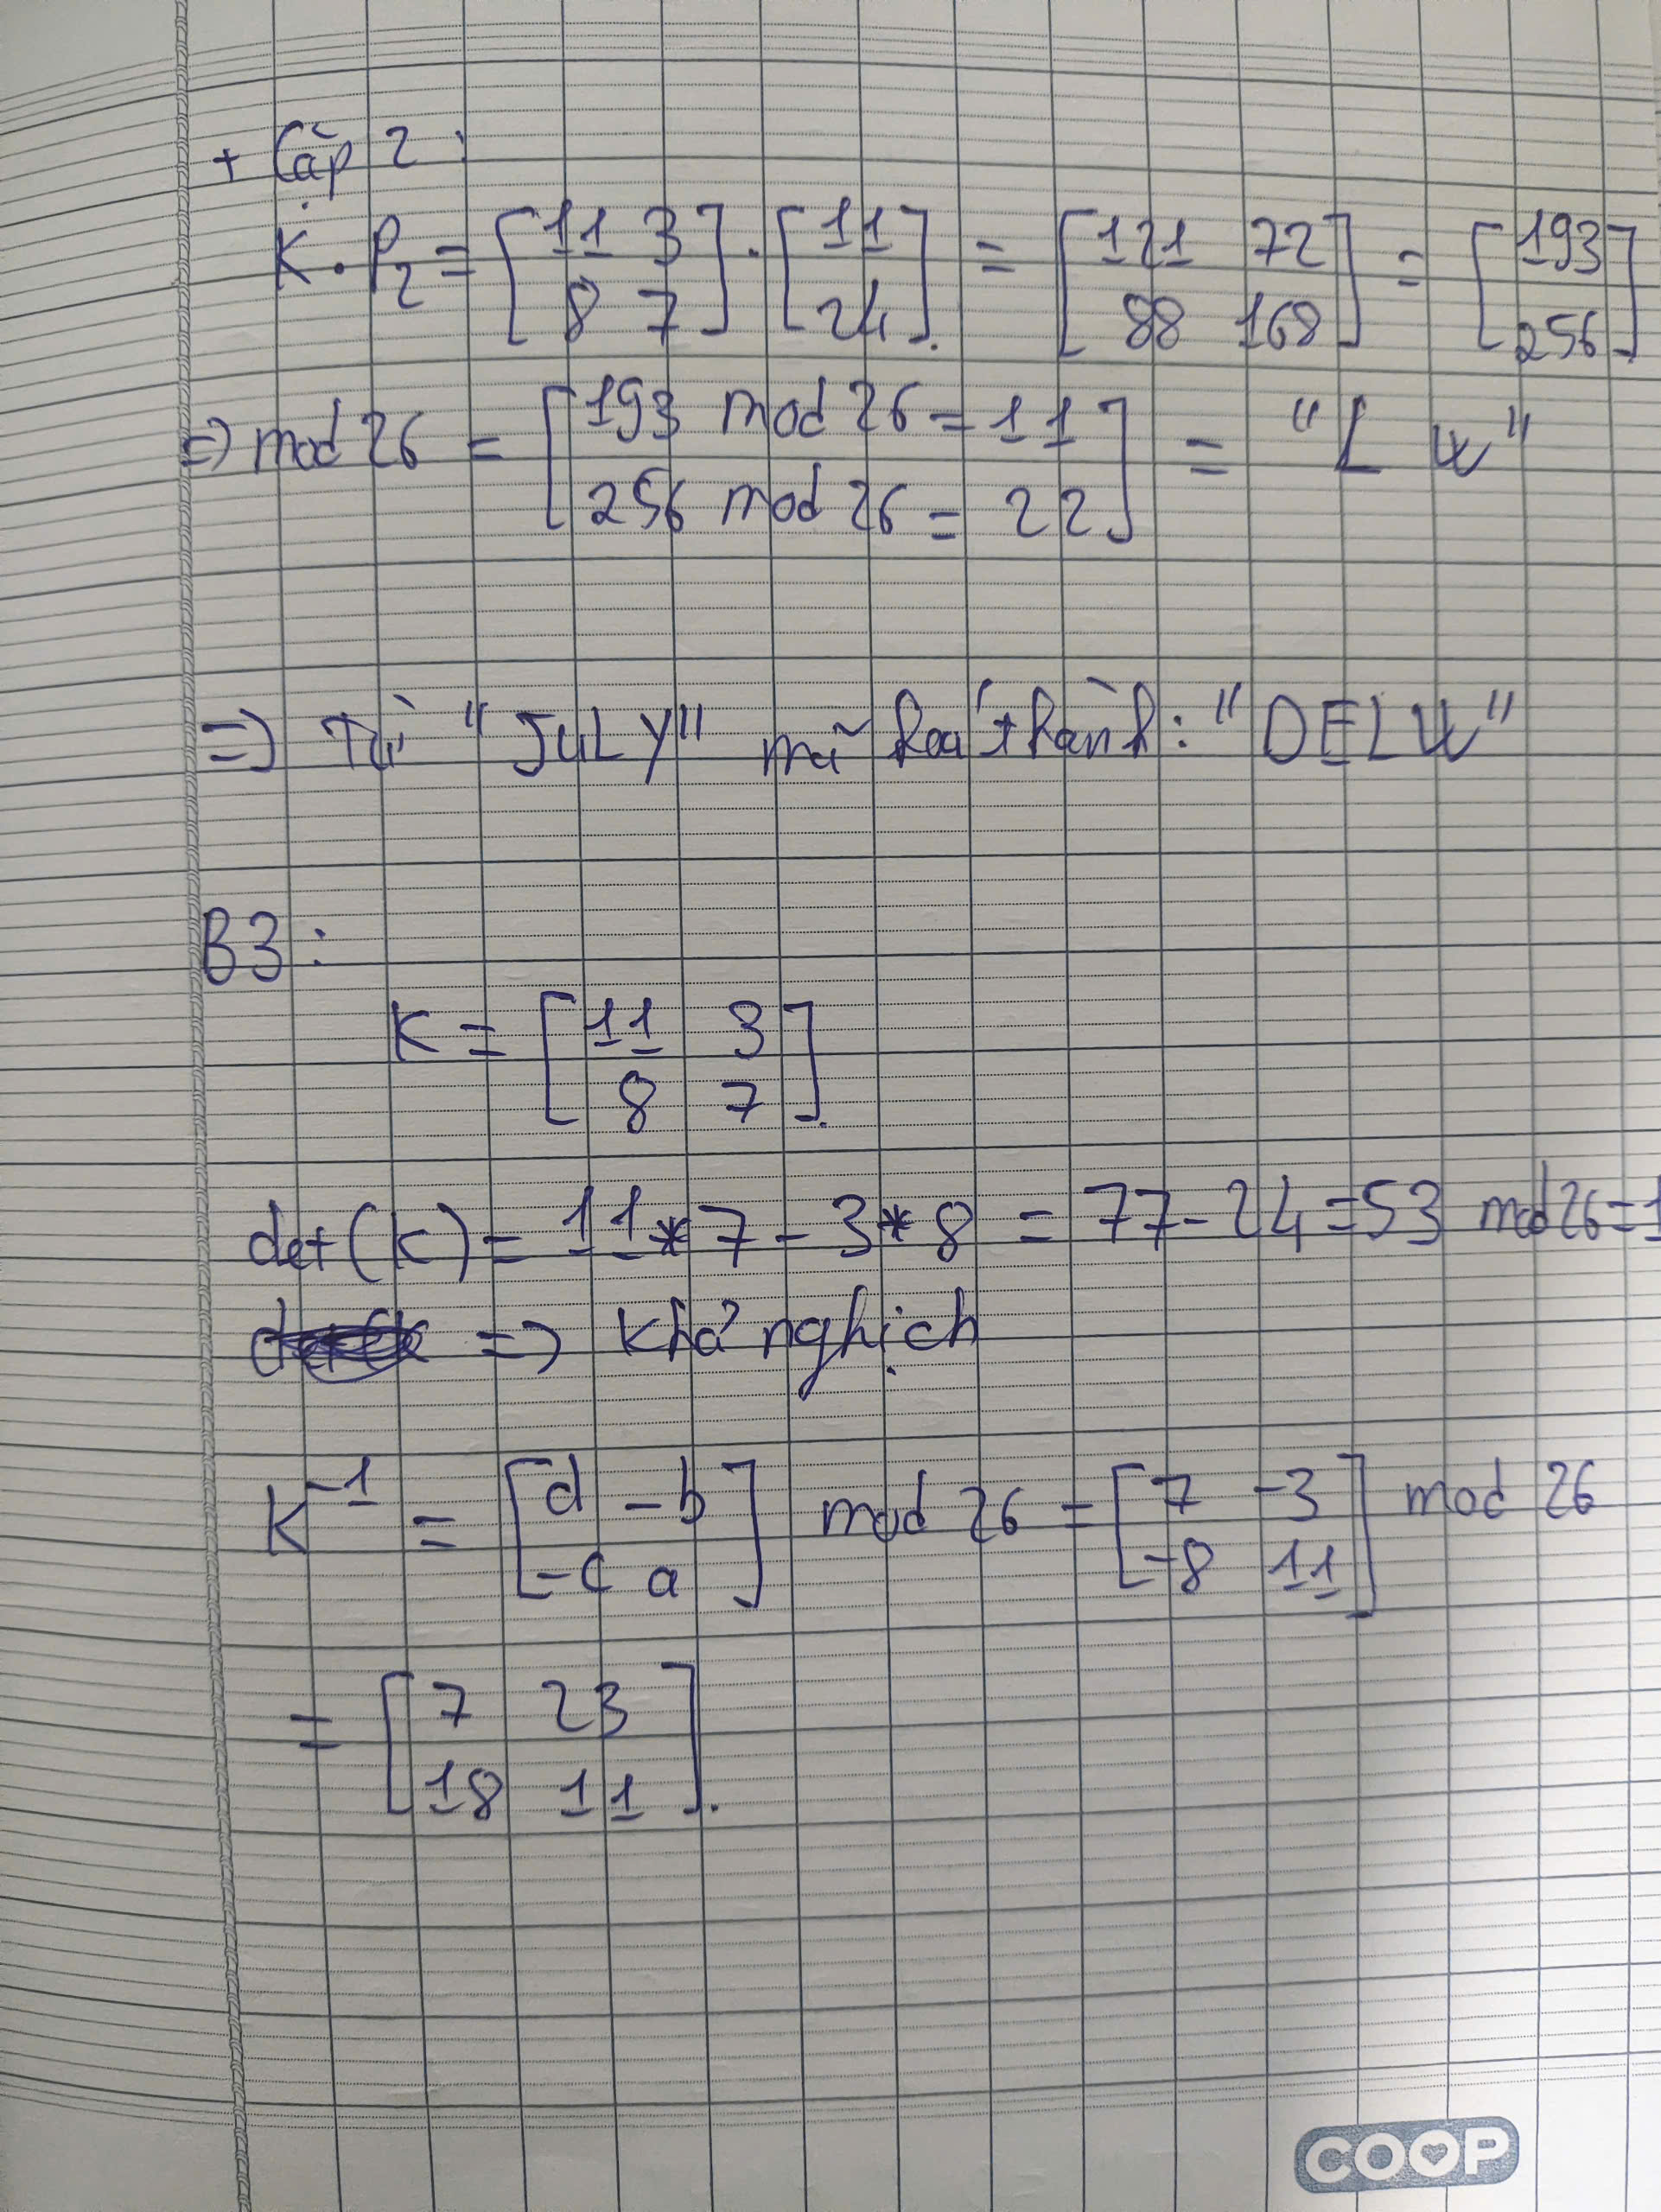 + Cặp 2:
K . P2 = [11 3; 8 7] . [11; 24] = [121 72; 88 168] = [193; 256]
=> mod 26 = [193 mod 26 = 11; 256 mod 26 = 22] = "L W"
=> Từ "JULY" mã hoá thành: "DELW"
B3:
K = [11 3; 8 7]
det(K) = 11*7 - 3*8 = 77 - 24 = 53 mod 26 = 1
=> Khả nghịch
K^-1 = [d -b; -c a] mod 26 = [7 -3; -8 11] mod 26
= [7 23; 18 11].
COOP